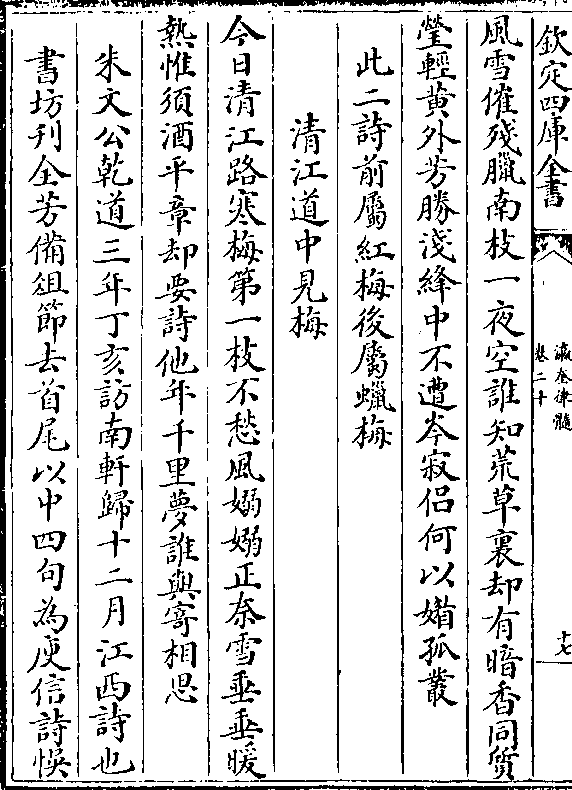 欽定四庫全書
瀛奎律髓
卷二十
十七
風雪催殘臘南枝一夜空誰知荒草裏却有暗香同質
瑩輕黃外芳勝淺絳中不遭岑寂侣何以媚孤叢
此二詩前屬紅梅後屬蠟梅
清江道中見梅
今日清江路寒梅第一枝不愁風嫋嫋正奈雪垂垂暖
熱惟須酒平章却要詩他年千里夢誰與寄相思
朱文公乾道三年丁亥訪南軒歸十二月江西詩也
書坊刊全芳備俎節去首尾以中四句為庾信詩悞